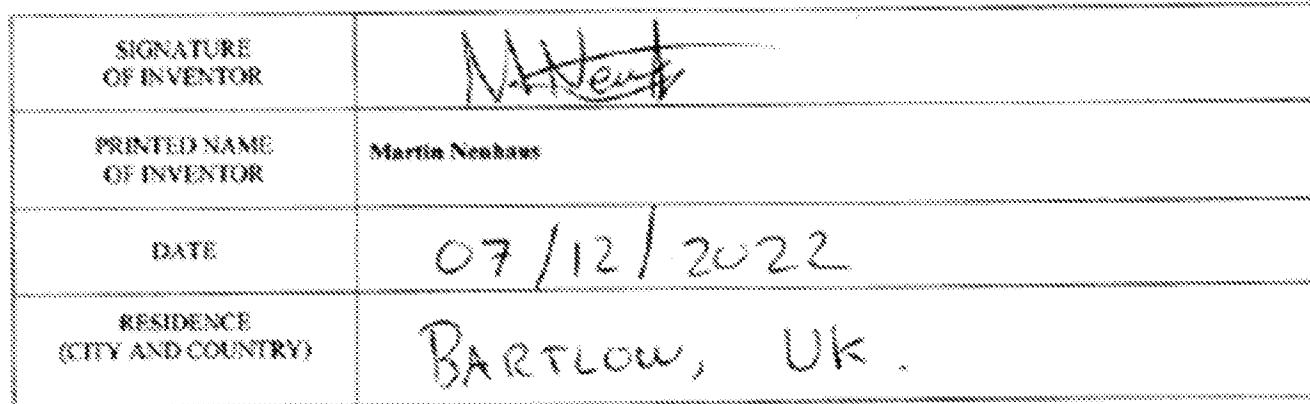 SIGNATURE
OF INVENTOR
PRINTED NAME
OF INVENTOR
Martin Neuhaus
DATE
07/12/2022
RESIDENCE
(CITY AND COUNTRY)
BARTLOW, UK.